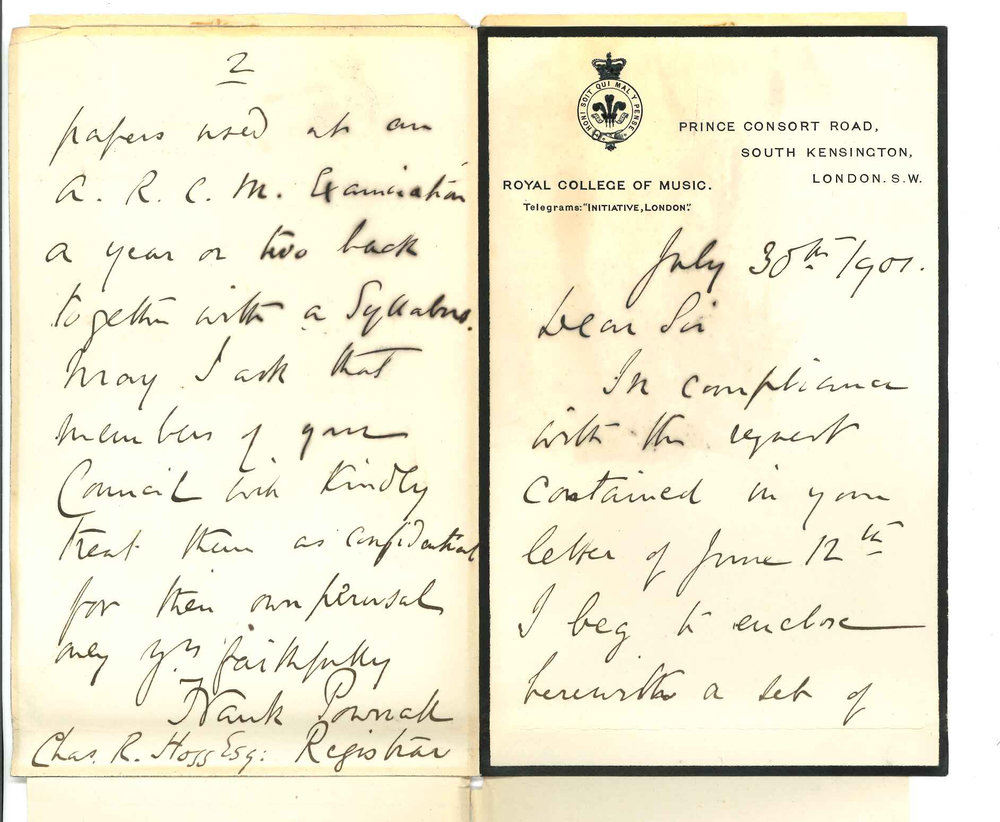 HONI SOIT QUI MAL Y PENSE
PRINCE CONSORT ROAD,
SOUTH KENSINGTON,
LONDON. S.W.
ROYAL COLLEGE OF MUSIC.
Telegrams: "INITIATIVE, LONDON."
July 30th 1901.
Dear Sir
In compliance
with the request
contained in your
letter of June 12th
I beg to enclose
herewith a set of
2
papers used at an
A. R. C. M. Examination
a year or two back
together with a Syllabus.
May I ask that
members of your
Council will kindly
treat them as confidential
for their own perusal
only Yrs faithfully
Frank Pownall
Chas. R. Hoss Esq: Registrar